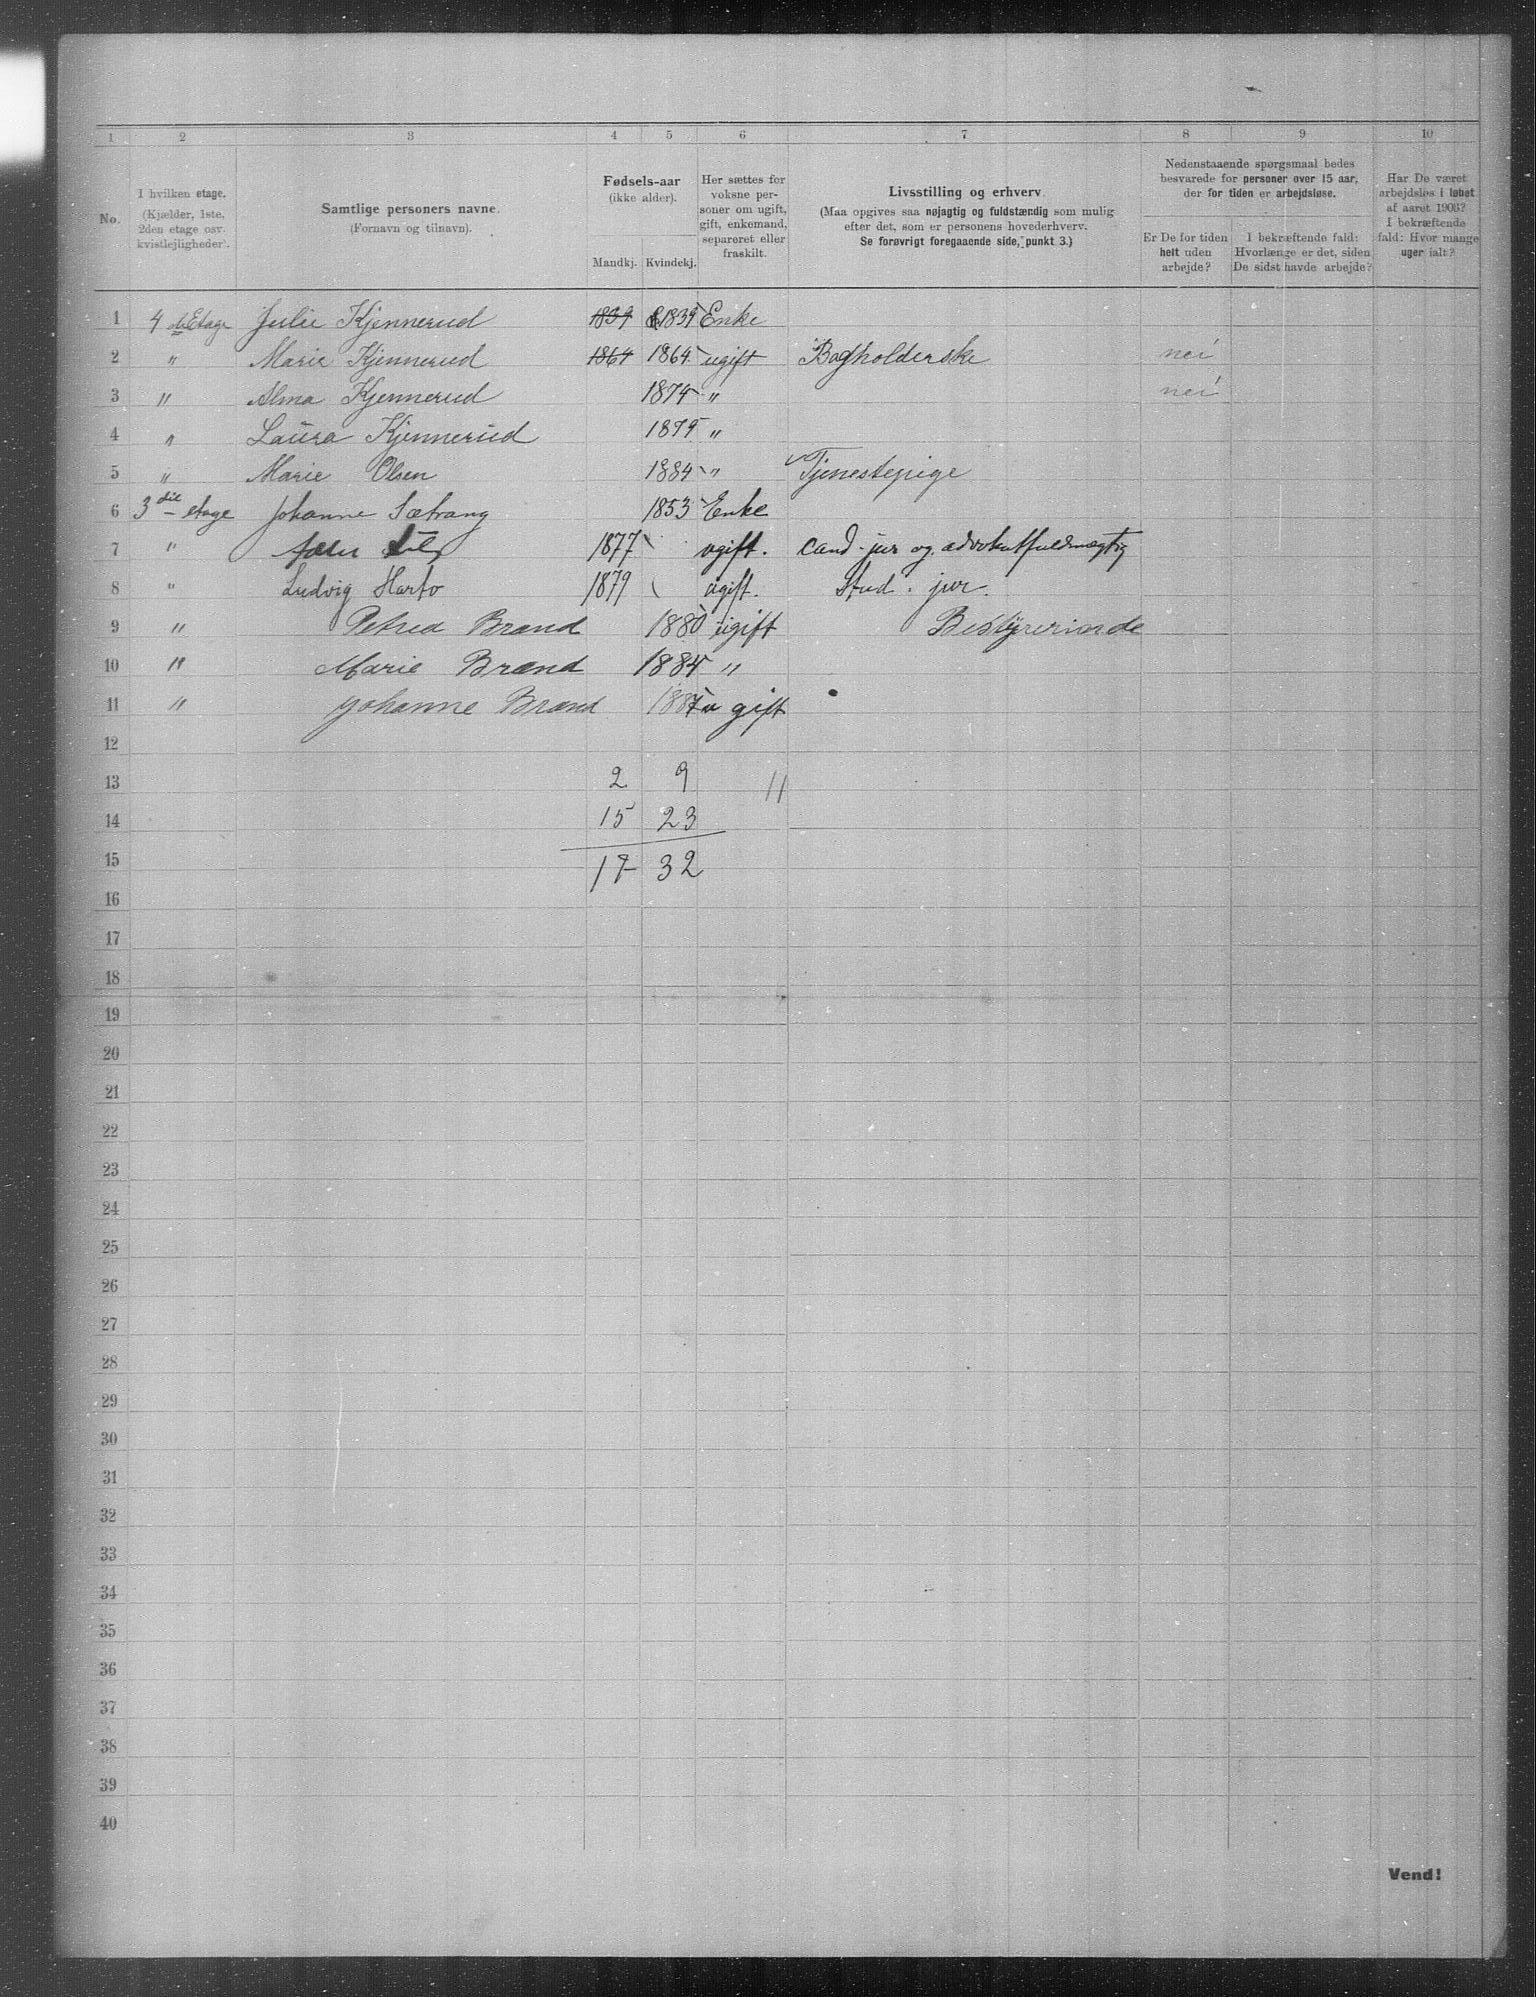 1 2 3 4 5 6 7 8 9 10
No.
I hvilken etage.
(Kjælder, 1ste,
2den etage osv.
kvistlejligheder).
Samtlige personers navne.
(Fornavn og tilnavn).
Fødsels-aar
(ikke alder).
Mandkj. Kvindekj.
Her sættes for
voksne per-
soner om ugift,
gift, enkemand,
separeret eller
fraskilt.
Livsstilling og erhverv.
(Maa opgives saa nøjagtig og fuldstændig som mulig
efter det, som er personens hovederhverv.
Se forøvrigt foregaaende side, punkt 3.)
Nedenstaaende spørgsmaal bedes
besvarede for personer over 15 aar,
der for tiden er arbejdsløse.
Er De for tiden
helt uden
arbejde?
I bekræftende fald:
Hvorlænge er det, siden
De sidst havde arbejde?
Har De været
arbejdsløs i løbet
af aaret 1903?
I bekræftende
fald: Hvor mange
uger ialt?
1 4 de Etage Julie Kjennerud 1839 1839 Enke
2 " Marie Kjennerud 1864 1864 ugift Bogholderske nei
3 " Alma Kjennerud 1874 " nei
4 " Laura Kjennerud 1879 "
5 " Marie Olsen 1884 " Tjenestepige
6 3 die etage Johanne Sætrang 1853 Enke
7 " 1877 ugift. cand. jur og advokatfuldmægtig
8 " Ludvig 1879 ugift. Stud. jur.
9 " Petrea Brænd 1880 ugift Bestyrerinde
10 " Marie Brænd 1884 "
11 " Johanne Brænd 1887 ugift
12
13 2 9 11
14 15 23
15 17 32
16
17
18
19
20
21
22
23
24
25
26
27
28
29
30
31
32
33
34
35
36
37
38
39
40
Vend!